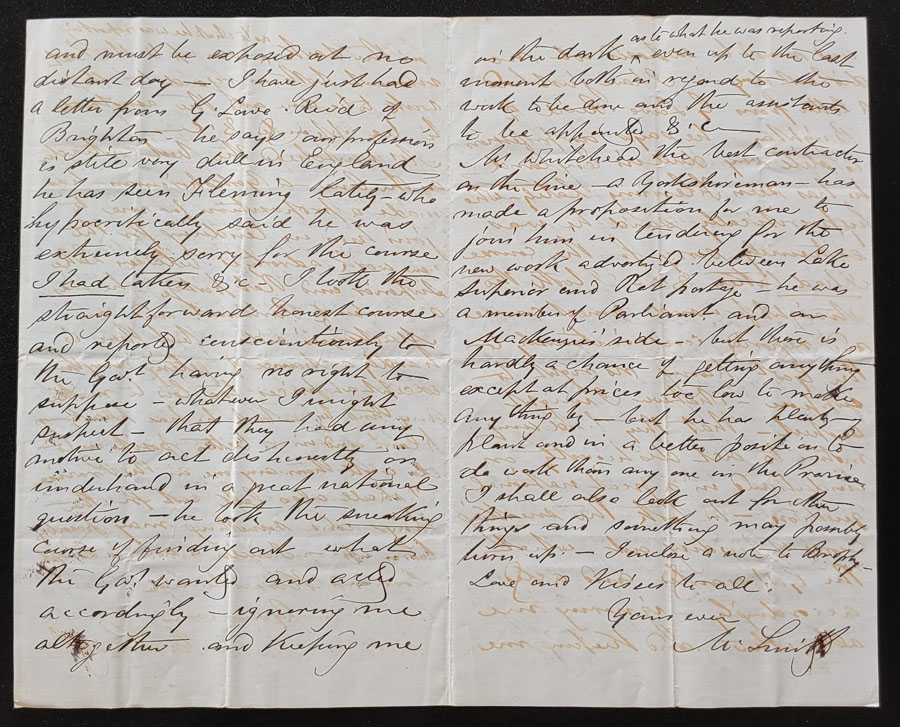 and must be exposed at no
distant day – I have just had
a letter from G. Lowe Reid of
Brighton – he says our profession
is still very dull in England
he has seen Fleming lately – who
hypocritically said he was
extremely sorry for the course
I had taken &c – I took the
straightforward honest course
and reported conscientiously to
the Govt. having no right to
suppose – whatever I might
suspect – that they had any
motive to act dishonestly or
underhand in a great national
question – he took the sneaking
course of finding out what
the Govt. wanted and acted
accordingly – ignoring me
altogether and keeping me
as to what he was reporting.
in the dark ^ even up to the last
moment both in regard to the
work to be done and the assistants
to be appointed &c –
Mr Whitehead the best contractor
on the line – a Yorkshireman – has
made a proposition for me to
join him in tendering for the
new work advertised between Lake
Superior and Rat portage – he was
a member of Parliamt. and on
Mackenzie's side – but there is
hardly a chance of getting anything
except at prices too low to make
anything by – but he has plenty of
plant and in a better position to
do work than any one in the Prairie
I shall also look out for other
things and something may possibly
turn up – I enclose a note to
Love and Kisses to all.
Yours ever
M. Smith